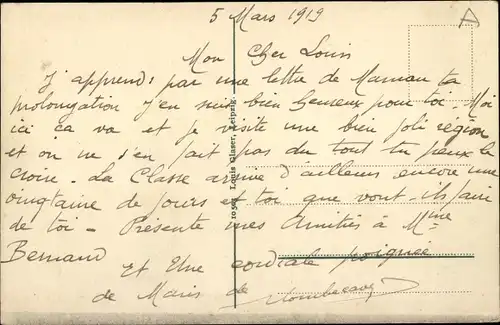 5 Mars 1919
Mon Cher Louis
J'apprends par une lettre de Maman ta
prolongation j'en suis bien heureux pour toi. Moi
ici ça va et je visite une bien joli région
et on ne s'en fait pas du tout tu peux le
croire. La Classe arrive d'ailleurs encore une
vingtaine de jours et toi que vont-ils faire
de toi - Présente mes Amitiés à Mme
Bernard
et Une cordiale poignée
de Mains de
10502 Louis Glaser, Leipzig.